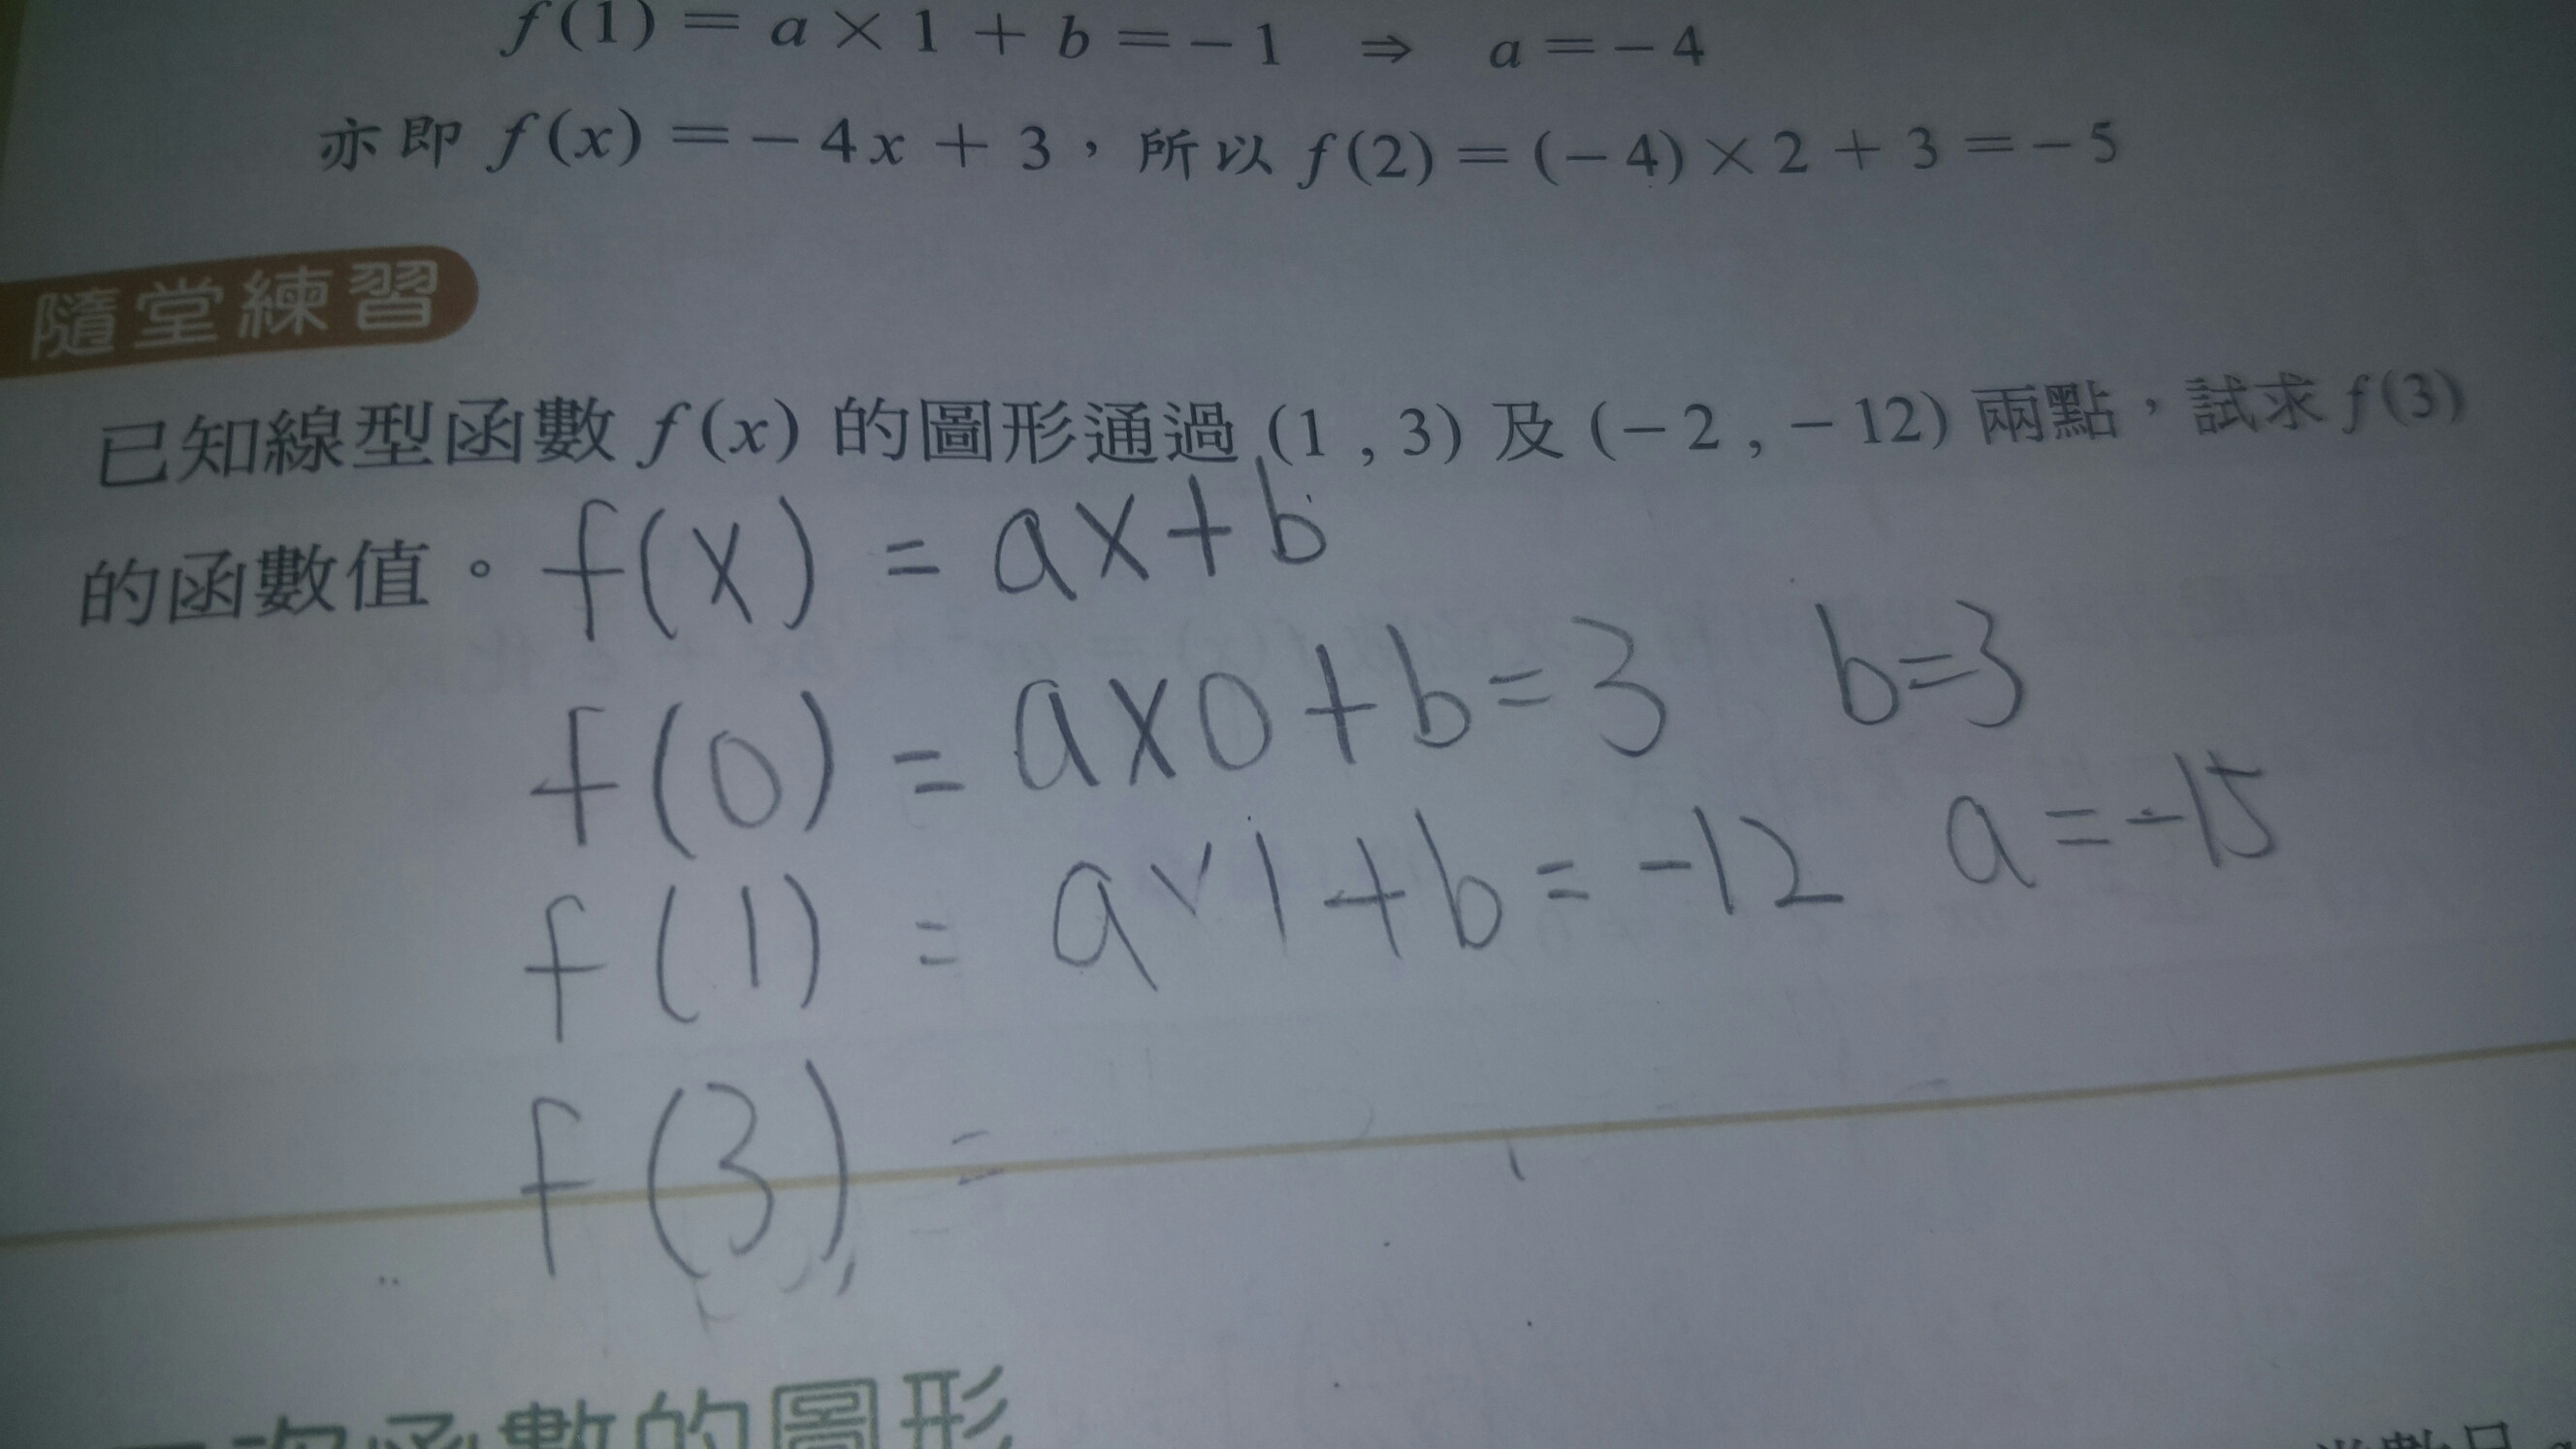 f(1)=a×1+b=-1 ⇒ a=-4
亦即 f(x)=-4x+3，所以 f(2)=(-4)×2+3=-5
隨堂練習
已知線型函數 f(x) 的圖形通過 (1,3) 及 (-2,-12) 兩點，試求 f(3)
的函數值。f(x)=ax+b
f(0)=a×0+b=3 b=3
f(1)=a×1+b=-12 a=-15
f(3)=
次函數的圖形